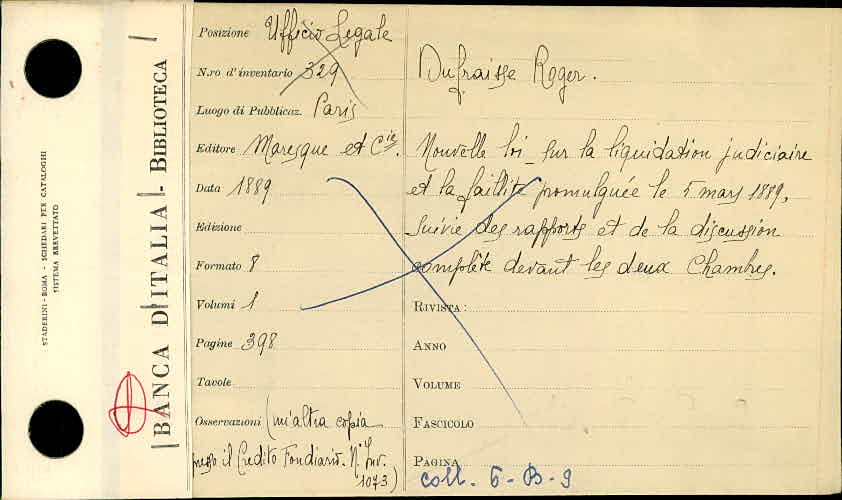 STADERINI - ROMA - SCHEDARI PER CATALOGHI
SISTEMA BREVETTATO
BANCA D'ITALIA - BIBLIOTECA
Posizione Ufficio Legale
N.ro d'inventario 329
Luogo di Pubblicaz. Paris
Editore Maresque et Cie.
Data 1889
Edizione
Formato 8
Volumi 1
Pagine 398
Tavole
Osservazioni (un'altra copia
presso il Credito Fondiario. N° Inv.
1073)
Dufraisse Roger.
Nouvelle loi sur la liquidation judiciaire
et la faillite promulguée le 5 mars 1889,
suivie des rapports et de la discussion
complète devant les deux Chambres.
RIVISTA:
ANNO
VOLUME
FASCICOLO
PAGINA
coll. 6-B-9